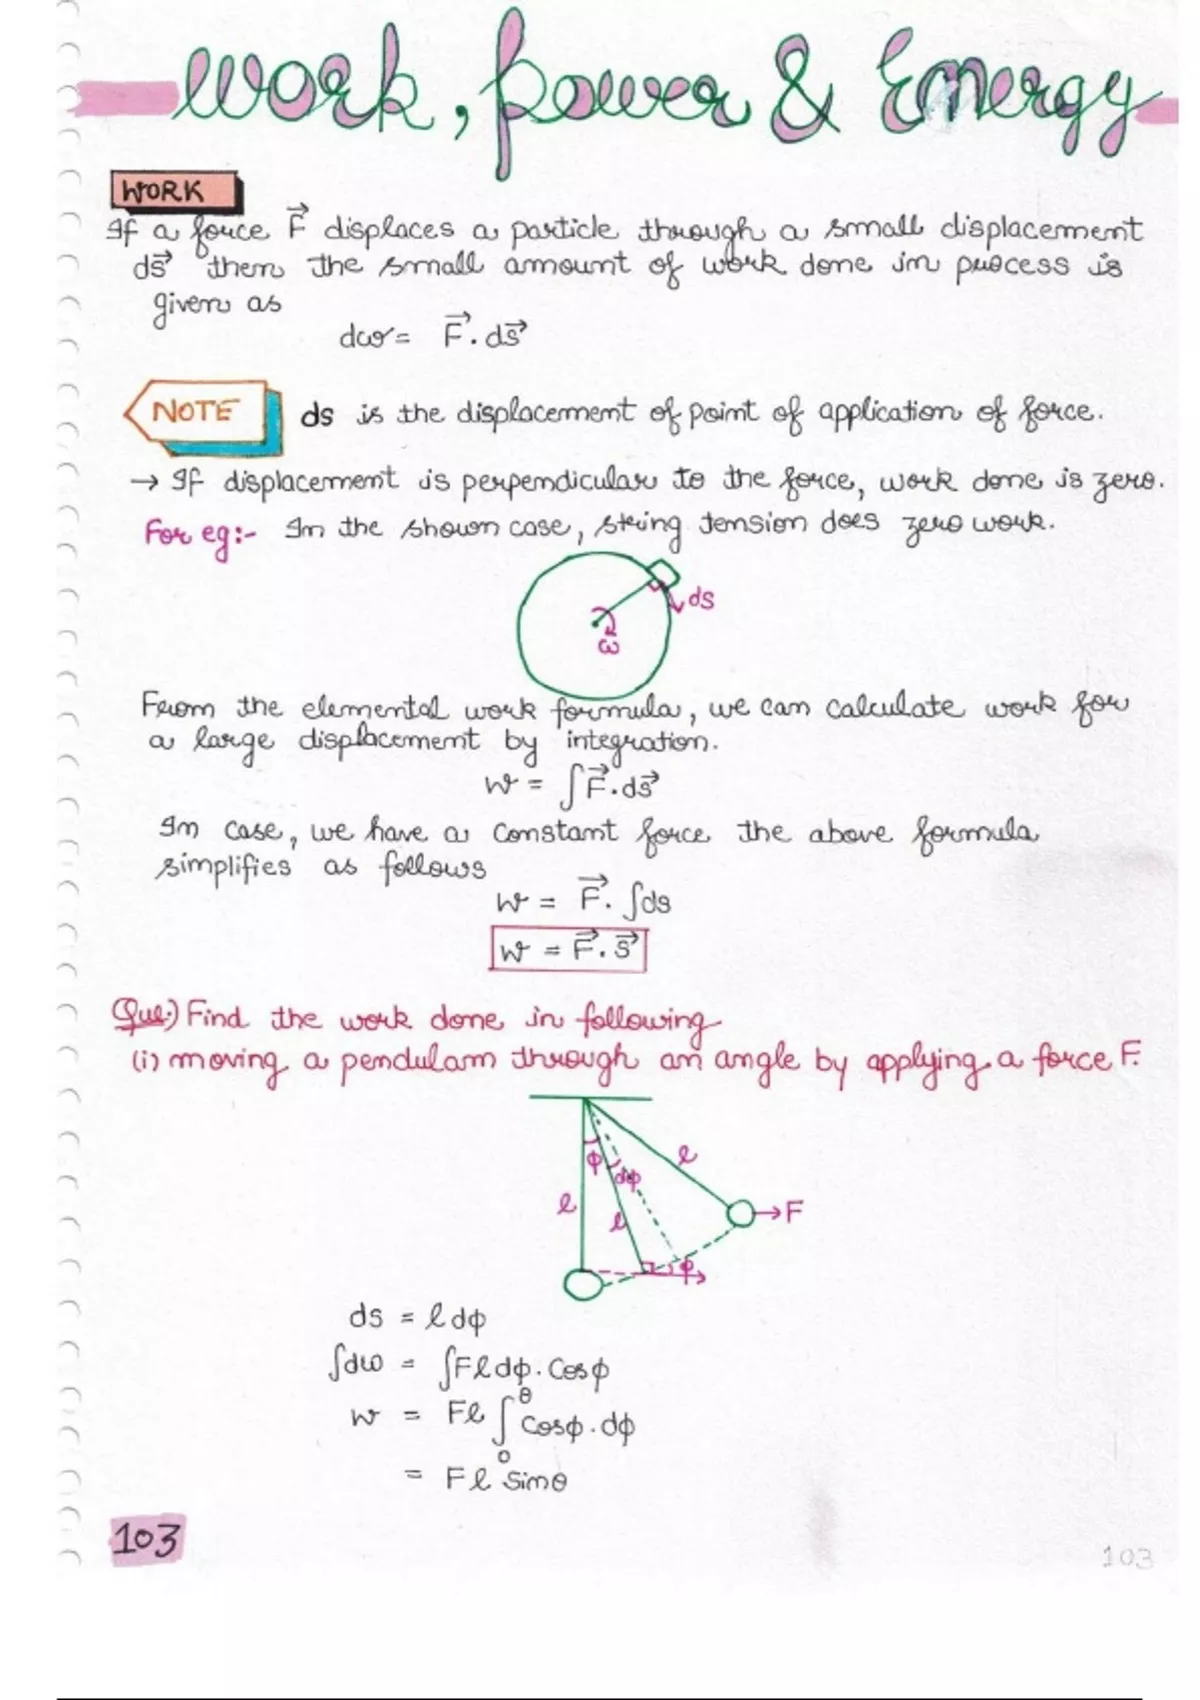 Work, Power & Energy
WORK
If a force F⃗ displaces a particle through a small displacement
ds⃗ then the small amount of work done in process is
given as
dw = F⃗ . ds⃗
NOTE ds is the displacement of point of application of force.
→ If displacement is perpendicular to the force, work done is zero.
For eg:- In the shown case, string tension does zero work.
ds
ω
From the elemental work formula, we can calculate work for
a large displacement by integration.
w = ∫F⃗.ds⃗
In case, we have a constant force the above formula
simplifies as follows
w = F⃗. ∫ds
w = F⃗. s⃗
Que:) Find the work done in following
(i) moving a pendulam through an angle by applying a force F.
ϕ dϕ l
l l F
ϕ
ds = l dϕ
∫dw = ∫Fldϕ. Cosϕ
w = Fl ∫₀^θ Cosϕ.dϕ
= Fl Sinθ
103
103